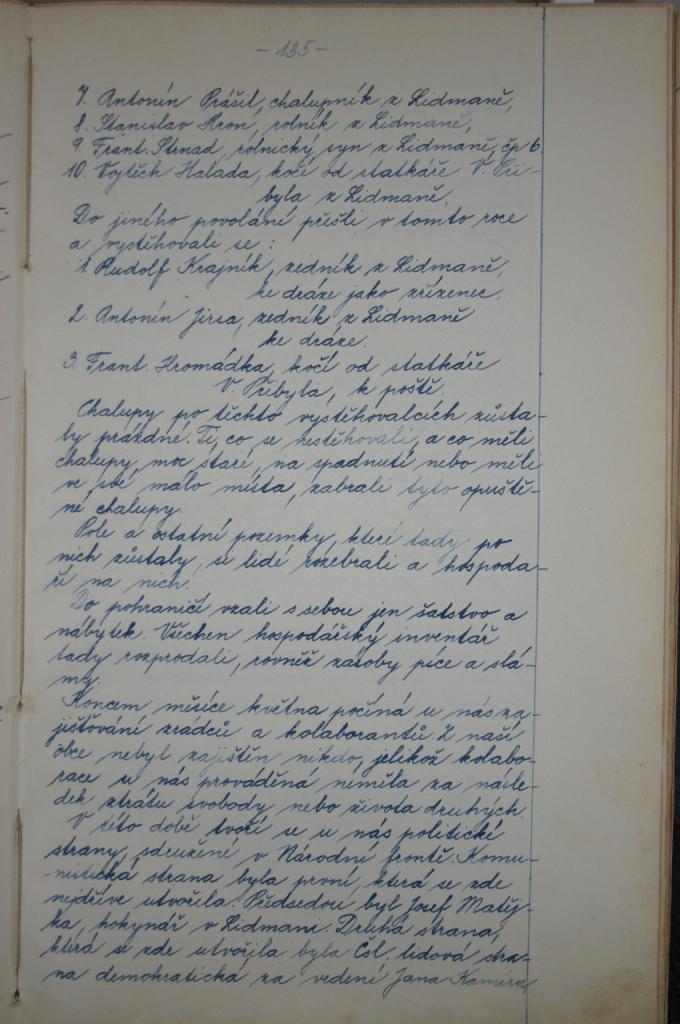 - 135 -
7. Antonín Prášil, chalupník z Lidmaně,
8. Stanislav Hron, rolník z Lidmaně,
9. Frant. Strnad, rolnický syn z Lidmaně, čp 6.
10. Vojtěch Halada, kočí od statkáře V. Při-
byla z Lidmaně.
Do jiného povolání přešli v tomto roce
a vystěhovali se:
1. Rudolf Krajník, zedník z Lidmaně,
ke dráze jako zřízenec.
2. Antonín Jirsa, zedník z Lidmaně
ke dráze.
3. Frant. Hromádka, kočí od statkáře
V. Přibyla, k poště.
Chalupy po těchto vystěhovalcích zůsta-
ly prázdné. Ti, co se nestěhovali, a co měli
chalupy, moc staré, na spadnutí nebo měli
ve své málo místa, zabrali tyto opuště-
né chalupy.
Pole a ostatní pozemky, které tady po
nich zůstaly, si lidé rozebrali a hospoda-
ří na nich.
Do pohraničí vzali s sebou jen šatstvo a
nábytek. Všechen hospodářský inventář
tady rozprodali, rovněž zásoby píce a slá-
my.
Koncem měsíce května počíná u nás za-
jišťování zrádců a kolaborantů. Z naší
obce nebyl zajištěn nikdo, jelikož kolabo-
race u nás prováděná neměla za násle-
dek ztrátu svobody nebo života druhých.
V této době tvoří se u nás politické
strany, sdružené v Národní frontě. Komu-
nistická strana byla první, která se zde
nejdříve utvořila. Předsedou byl Josef Matěj-
ka, hokynář v Lidmani. Druhá strana,
která se zde utvořila byla Čsl. lidová stra-
na demokratická za vedení Jana Kamíra,